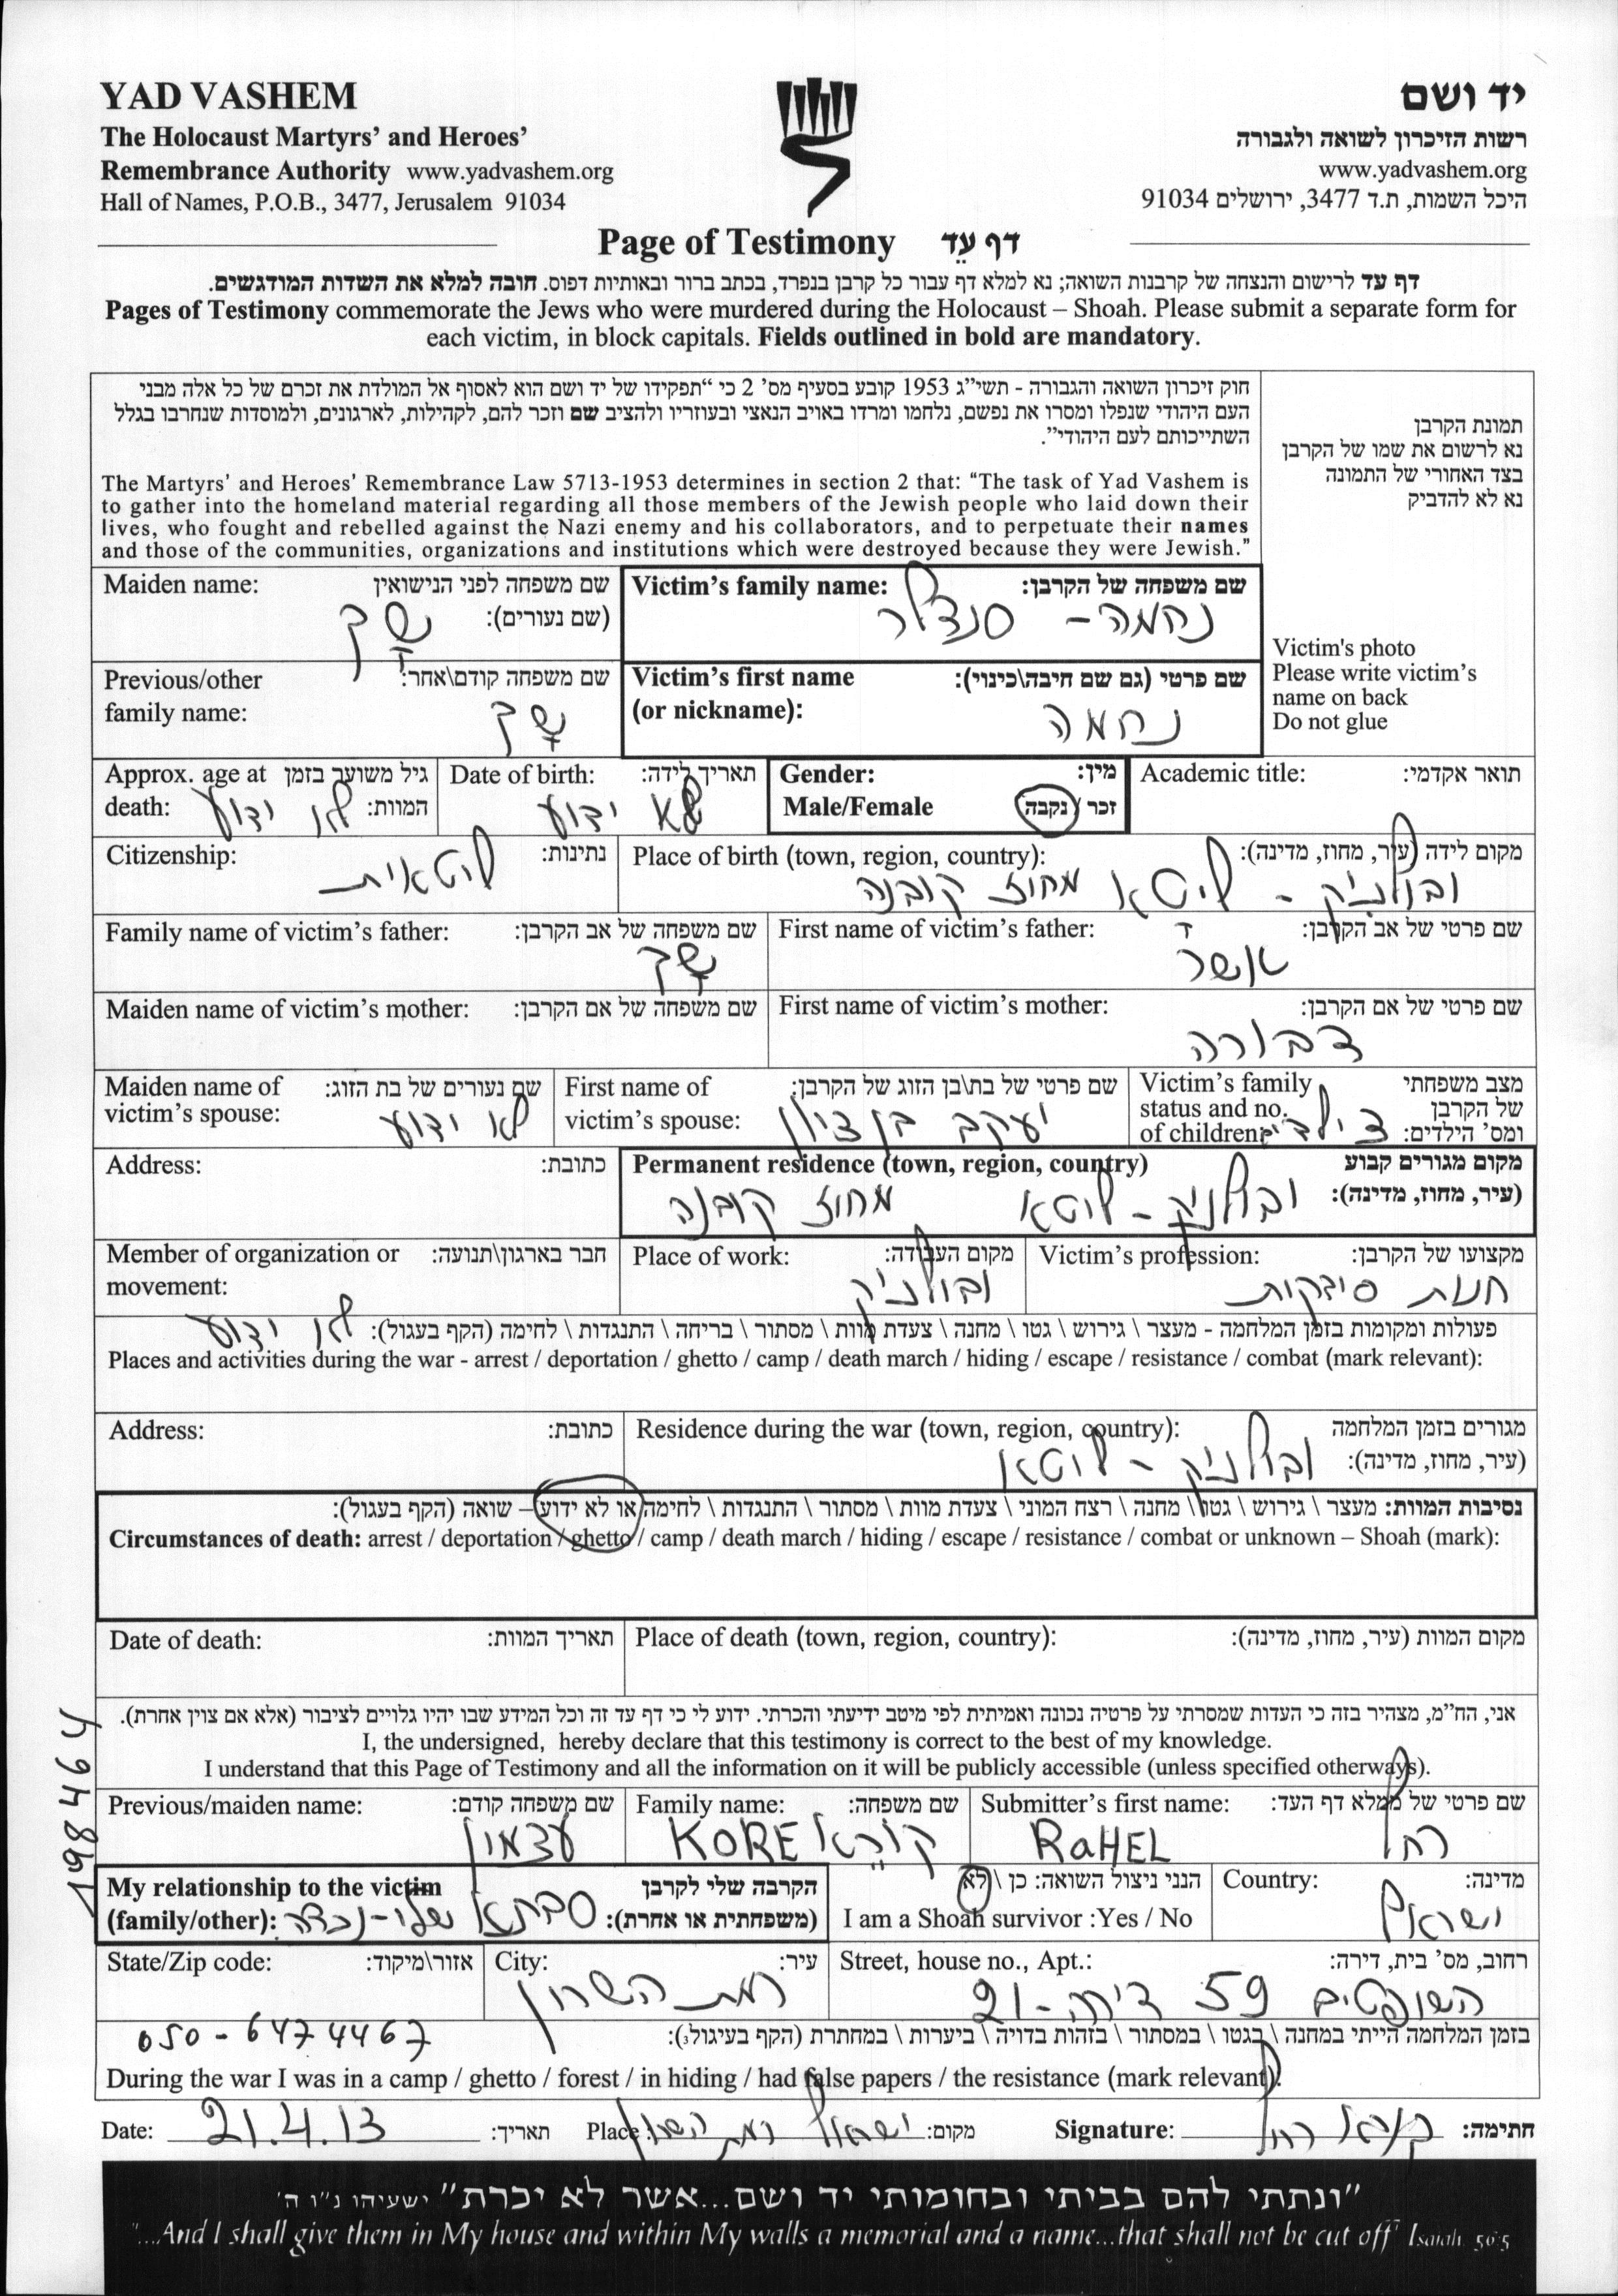 YAD VASHEM
The Holocaust Martyrs' and Heroes'
Remembrance Authority www.yadvashem.org
Hall of Names, P.O.B., 3477, Jerusalem 91034
יד ושם
רשות הזיכרון לשואה ולגבורה
www.yadvashem.org
היכל השמות, ת.ד 3477, ירושלים 91034
Page of Testimony דף עֵד
דף עד לרישום והנצחה של קרבנות השואה; נא למלא דף עבור כל קרבן בנפרד, בכתב ברור ובאותיות דפוס. חובה למלא את השדות המודגשים.
Pages of Testimony commemorate the Jews who were murdered during the Holocaust – Shoah. Please submit a separate form for
each victim, in block capitals. Fields outlined in bold are mandatory.
חוק זיכרון השואה והגבורה - תשי״ג 1953 קובע בסעיף מס' 2 כי ״תפקידו של יד ושם הוא לאסוף אל המולדת את זכרם של כל אלה מבני
העם היהודי שנפלו ומסרו את נפשם, נלחמו ומרדו באויב הנאצי ובעוזריו ולהציב שם וזכר להם, לקהילות, לארגונים, ולמוסדות שנחרבו בגלל
השתייכותם לעם היהודי״.
The Martyrs' and Heroes' Remembrance Law 5713-1953 determines in section 2 that: "The task of Yad Vashem is
to gather into the homeland material regarding all those members of the Jewish people who laid down their
lives, who fought and rebelled against the Nazi enemy and his collaborators, and to perpetuate their names
and those of the communities, organizations and institutions which were destroyed because they were Jewish."
תמונת הקרבן
נא לרשום את שמו של הקרבן
בצד האחורי של התמונה
נא לא להדביק
Victim's photo
Please write victim's
name on back
Do not glue
Victim's family name: שם משפחה של הקרבן:
נחמה - סנדלר
Maiden name: שם משפחה לפני הנישואין
(שם נעורים): שָׁך
Victim's first name שם פרטי (גם שם חיבה\כינוי):
(or nickname): נחמה
Previous/other שם משפחה קודם\אחר:
family name: שָׁך
Academic title: תואר אקדמי:
Gender: מין:
Male/Female זכר / נקבה
Date of birth: תאריך לידה:
לא ידוע
Approx. age at גיל משוער בזמן
death: המוות: לא ידוע
Place of birth (town, region, country): מקום לידה (עיר, מחוז, מדינה):
ובולניק - ליטא מחוז קובנה
Citizenship: נתינות:
ליטאית
First name of victim's father: שם פרטי של אב הקרבן:
אשר
Family name of victim's father: שם משפחה של אב הקרבן:
שָׁך
First name of victim's mother: שם פרטי של אם הקרבן:
דבורה
Maiden name of victim's mother: שם משפחה של אם הקרבן:
Victim's family מצב משפחתי
status and no. של הקרבן
of children: ומס' הילדים:
First name of שם פרטי של בת\בן הזוג של הקרבן:
victim's spouse: יעקב בן ציון
Maiden name of שם נעורים של בת הזוג:
victim's spouse: לא ידוע
Permanent residence (town, region, country) מקום מגורים קבוע
(עיר, מחוז, מדינה): ובולניק - ליטא מחוז קובנה
Address: כתובת:
Victim's profession: מקצועו של הקרבן:
חנות סידקית
Place of work: מקום העבודה:
ובולניק
Member of organization or חבר בארגון\תנועה:
movement:
פעולות ומקומות בזמן המלחמה - מעצר \ גירוש \ גטו \ מחנה \ צעדת מוות \ מסתור \ בריחה \ התנגדות \ לחימה (הקף בעגול): לא ידוע
Places and activities during the war - arrest / deportation / ghetto / camp / death march / hiding / escape / resistance / combat (mark relevant):
Residence during the war (town, region, country): מגורים בזמן המלחמה
(עיר, מחוז, מדינה): ובולניק - ליטא
Address: כתובת:
נסיבות המוות: מעצר \ גירוש \ גטו \ מחנה \ רצח המוני \ צעדת מוות \ מסתור \ התנגדות \ לחימה או לא ידוע – שואה (הקף בעגול):
Circumstances of death: arrest / deportation / ghetto / camp / death march / hiding / escape / resistance / combat or unknown – Shoah (mark):
Place of death (town, region, country): מקום המוות (עיר, מחוז, מדינה):
Date of death: תאריך המוות:
אני, הח״מ, מצהיר בזה כי העדות שמסרתי על פרטיה נכונה ואמיתית לפי מיטב ידיעתי והכרתי. ידוע לי כי דף עד זה וכל המידע שבו יהיו גלויים לציבור (אלא אם צוין אחרת).
I, the undersigned, hereby declare that this testimony is correct to the best of my knowledge.
I understand that this Page of Testimony and all the information on it will be publicly accessible (unless specified otherways).
198464
Submitter's first name: שם פרטי של ממלא דף העד:
RaHEL רחל
Family name: שם משפחה:
KORE קורא
Previous/maiden name: שם משפחה קודם:
עצמון
Country: מדינה:
ישראל
הנני ניצול השואה: כן \ לא
I am a Shoah survivor :Yes / No
My relationship to the victim הקרבה שלי לקרבן
(family/other): (משפחתית או אחרת): סבתא שלי - נכדה
Street, house no., Apt.: רחוב, מס' בית, דירה:
השופטים 59 דירה - 21
City: עיר:
רמת השרון
State/Zip code: אזור\מיקוד:
050-6474467
בזמן המלחמה הייתי במחנה \ בגטו \ במסתור \ בזהות בדויה \ ביערות \ במחתרת (הקף בעיגול):
During the war I was in a camp / ghetto / forest / in hiding / had false papers / the resistance (mark relevant):
Date: 21.4.13 תאריך: Place: ישראל רמת השרון מקום: Signature: קורא רחל חתימה:
״ונתתי להם בביתי ובחומותי יד ושם...אשר לא יכרת״ ישעיהו נ״ו ה'
"...And I shall give them in My house and within My walls a memorial and a name...that shall not be cut off" Isaiah 56:5